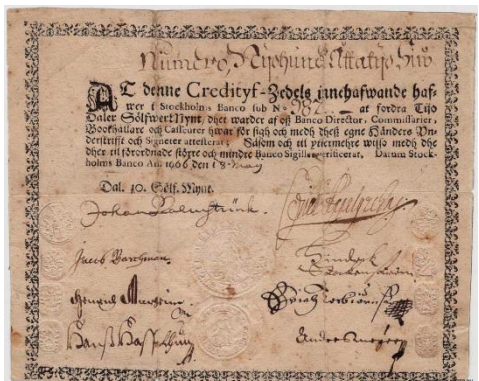 Numero Nijohund Ottatijo Siw
AT denne Credityf-Zedels innehafwande haf-
wer i Stockholms Banco sub N° 982 at fordra Tijo
Daler Sölfwer Mynt dhet warder af oß Banco Director, Commissarier,
Bookhållare och Casseurer hwar för sigh och medh dheß egne Händers Vn-
derskrifft och Signeter attesterat; Såsom och til yttermehre wisso medh dhe
dher til förordnade större och mindre Banco Sigiller verificerat. Datum Stock-
holms Banco An. 1666 den 18 May
Dal. 10. Sölf. Mynt.
Johan Palmstruk.
Jacob Barchman.
Hans
Anders Meijer